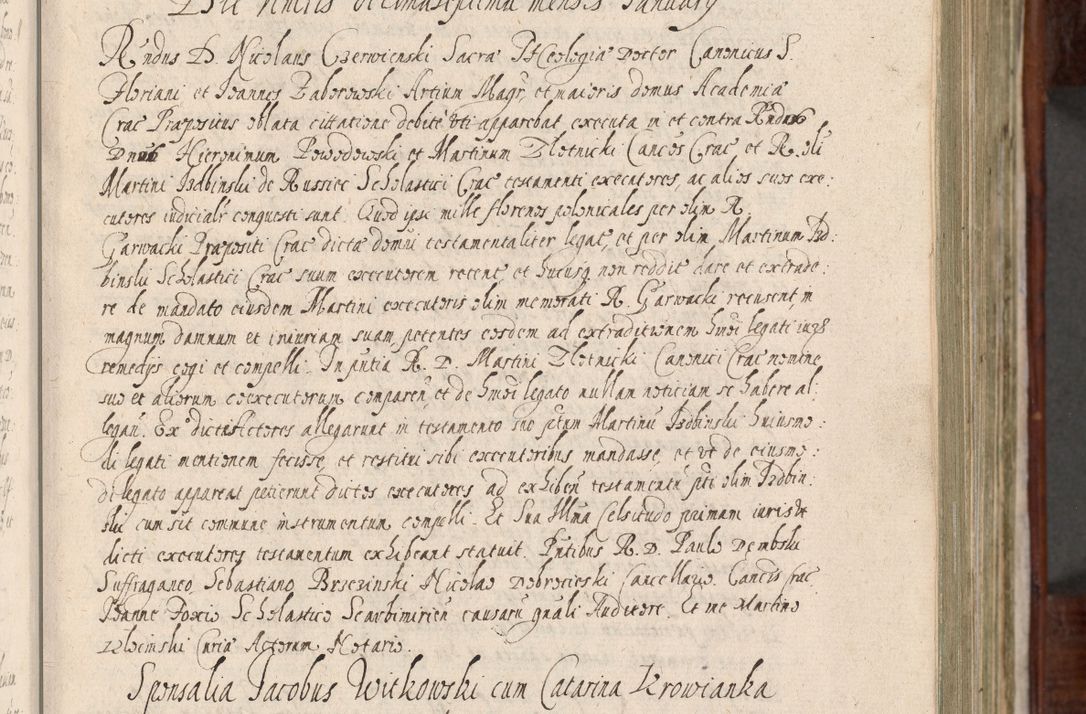 Die Veneris decimaseptima mensis January
Rndus D. Nicolaus Czerwienski Sacræ Theologiæ Doctor Canonicus S.
Floriani et Joannes Zaborowski Artium Magr, et maioris domus Academiæ
Crac Præpositus oblata cittatione debite uti apparebat executa in et contra Rndos
Dnos Hieronimum Powodowski et Martinum Zlotnicki Cancos Crac et R. oli
Martini Izdbinski de Russiec Scholastici Crac testamenti executores, ac alios suos exe:
cutores iudicialr conquesti sunt. Quod ipsi mille florenos polonicales per olim R.
Garwacki Præpositi Crac dictæ domui testamentaliter legat, et per olim Martinum Izd:
binski Scholastici Crac suum executorem recent et hucusq non reddit dare et extrade:
re de mandato eiusdem Martini executoris olim memorati R. Garwacki recusent, in
magnum damnum et iniuriam suam, petentes eosdem ad extraditionem hmoi legati iuris
remedijs cogi et compelli. In pntia R. D. Martini Zlotnicki Canonici Crac nomine
suo et aliorum coexecutorum comparen, et de hmoi legato nullam noticiam se habere al:
legan. Ex dicti Actores allegarunt in testamento suo pttum Martinu Izdbinski huiusmo:
di legati mentionem fecisse, et restitui sibi executoribus mandasse, et ut de eiusmo:
di legato appareat petierunt dictos executores ad exhiben testamentu pti olim Izdbin:
ski cum sit commune instrumentum compelli. Et Sua Illma Celsitudo primam iuris ut
dicti executores testamentum exhibeant statuit. Pntibus R. D. Paulo Dembski
Suffraganeo, Sebastiano Brzezinski Nicolao Dobrocieski Cancellario. Cancis Crac
Joanne Foxio Scholastico Scarbimirien causaru gnali Auditore. Et me Martino
Zlocinski Curiæ Actorum Notario.
Sponsalia Jacobus Witkowski cum Catarina Krowianka